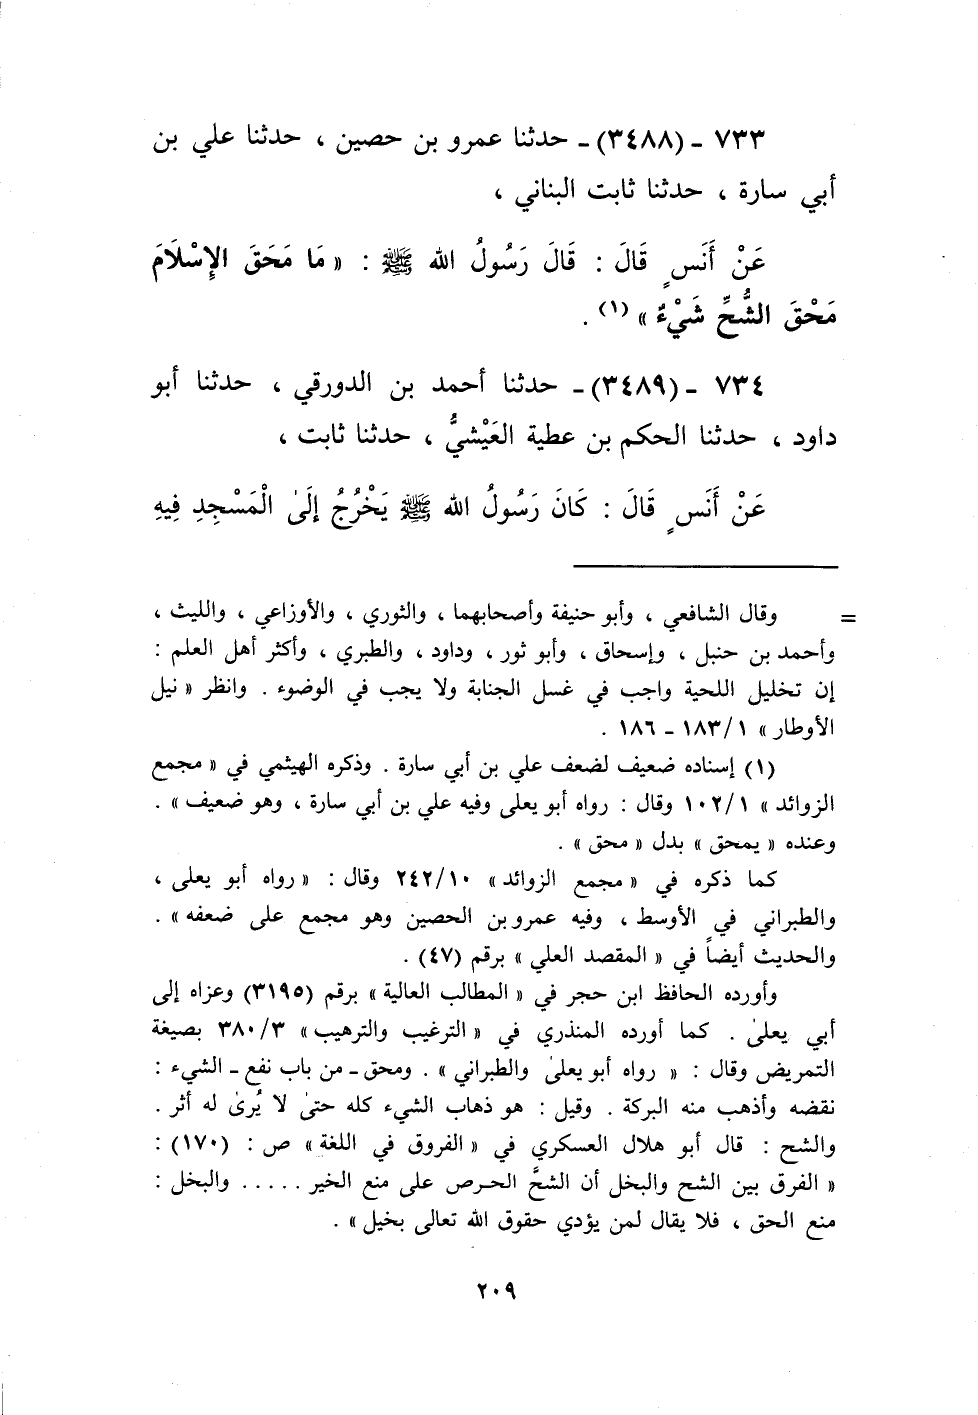 ٧٣٣ - (٣٤٨٨) - حدثنا عمرو بن حصين ، حدثنا علي بن
أبي سارة ، حدثنا ثابت البناني ،
عَنْ أَنَسٍ قَالَ : قَالَ رَسُولُ الله ﷺ : « مَا مَحَقَ الإِسْلَامَ
مَحْقَ الشُّحِّ شَيْءٌ » (١) .
٧٣٤ - (٣٤٨٩) - حدثنا أحمد بن الدورقي ، حدثنا أبو
داود ، حدثنا الحكم بن عطية العَيْشيُّ ، حدثنا ثابت ،
عَنْ أَنَسٍ قَالَ : كَانَ رَسُولُ الله ﷺ يَخْرُجُ إِلَىٰ الْمَسْجِدِ فِيهِ
= وقال الشافعي ، وأبو حنيفة وأصحابهما ، والثوري ، والأوزاعي ، والليث ،
وأحمد بن حنبل ، وإسحاق ، وأبو ثور ، وداود ، والطبري ، وأكثر أهل العلم :
إن تخليل اللحية واجب في غسل الجنابة ولا يجب في الوضوء . وانظر « نيل
الأوطار » ١/ ١٨٣ - ١٨٦ .
(١) إسناده ضعيف لضعف علي بن أبي سارة . وذكره الهيثمي في « مجمع
الزوائد » ١/ ١٠٢ وقال : رواه أبو يعلى وفيه علي بن أبي سارة ، وهو ضعيف » .
وعنده « يمحق » بدل « محق » .
كما ذكره في « مجمع الزوائد » ١٠/ ٢٤٢ وقال : « رواه أبو يعلى ،
والطبراني في الأوسط ، وفيه عمرو بن الحصين وهو مجمع على ضعفه » .
والحديث أيضاً في « المقصد العلي » برقم (٤٧) .
وأورده الحافظ ابن حجر في « المطالب العالية » برقم (٣١٩٥) وعزاه إلى
أبي يعلىٰ . كما أورده المنذري في « الترغيب والترهيب » ٣/ ٣٨٠ بصيغة
التمريض وقال : « رواه أبو يعلىٰ والطبراني » . ومحق - من باب نفع - الشيء :
نقضه وأذهب منه البركة . وقيل : هو ذهاب الشيء كله حتىٰ لا يُرىٰ له أثر .
والشح : قال أبو هلال العسكري في « الفروق في اللغة » ص : (١٧٠) :
« الفرق بين الشح والبخل أن الشحَّ الحرص على منع الخير ..... والبخل :
منع الحق ، فلا يقال لمن يؤدي حقوق الله تعالى بخيل » .
٢٠٩